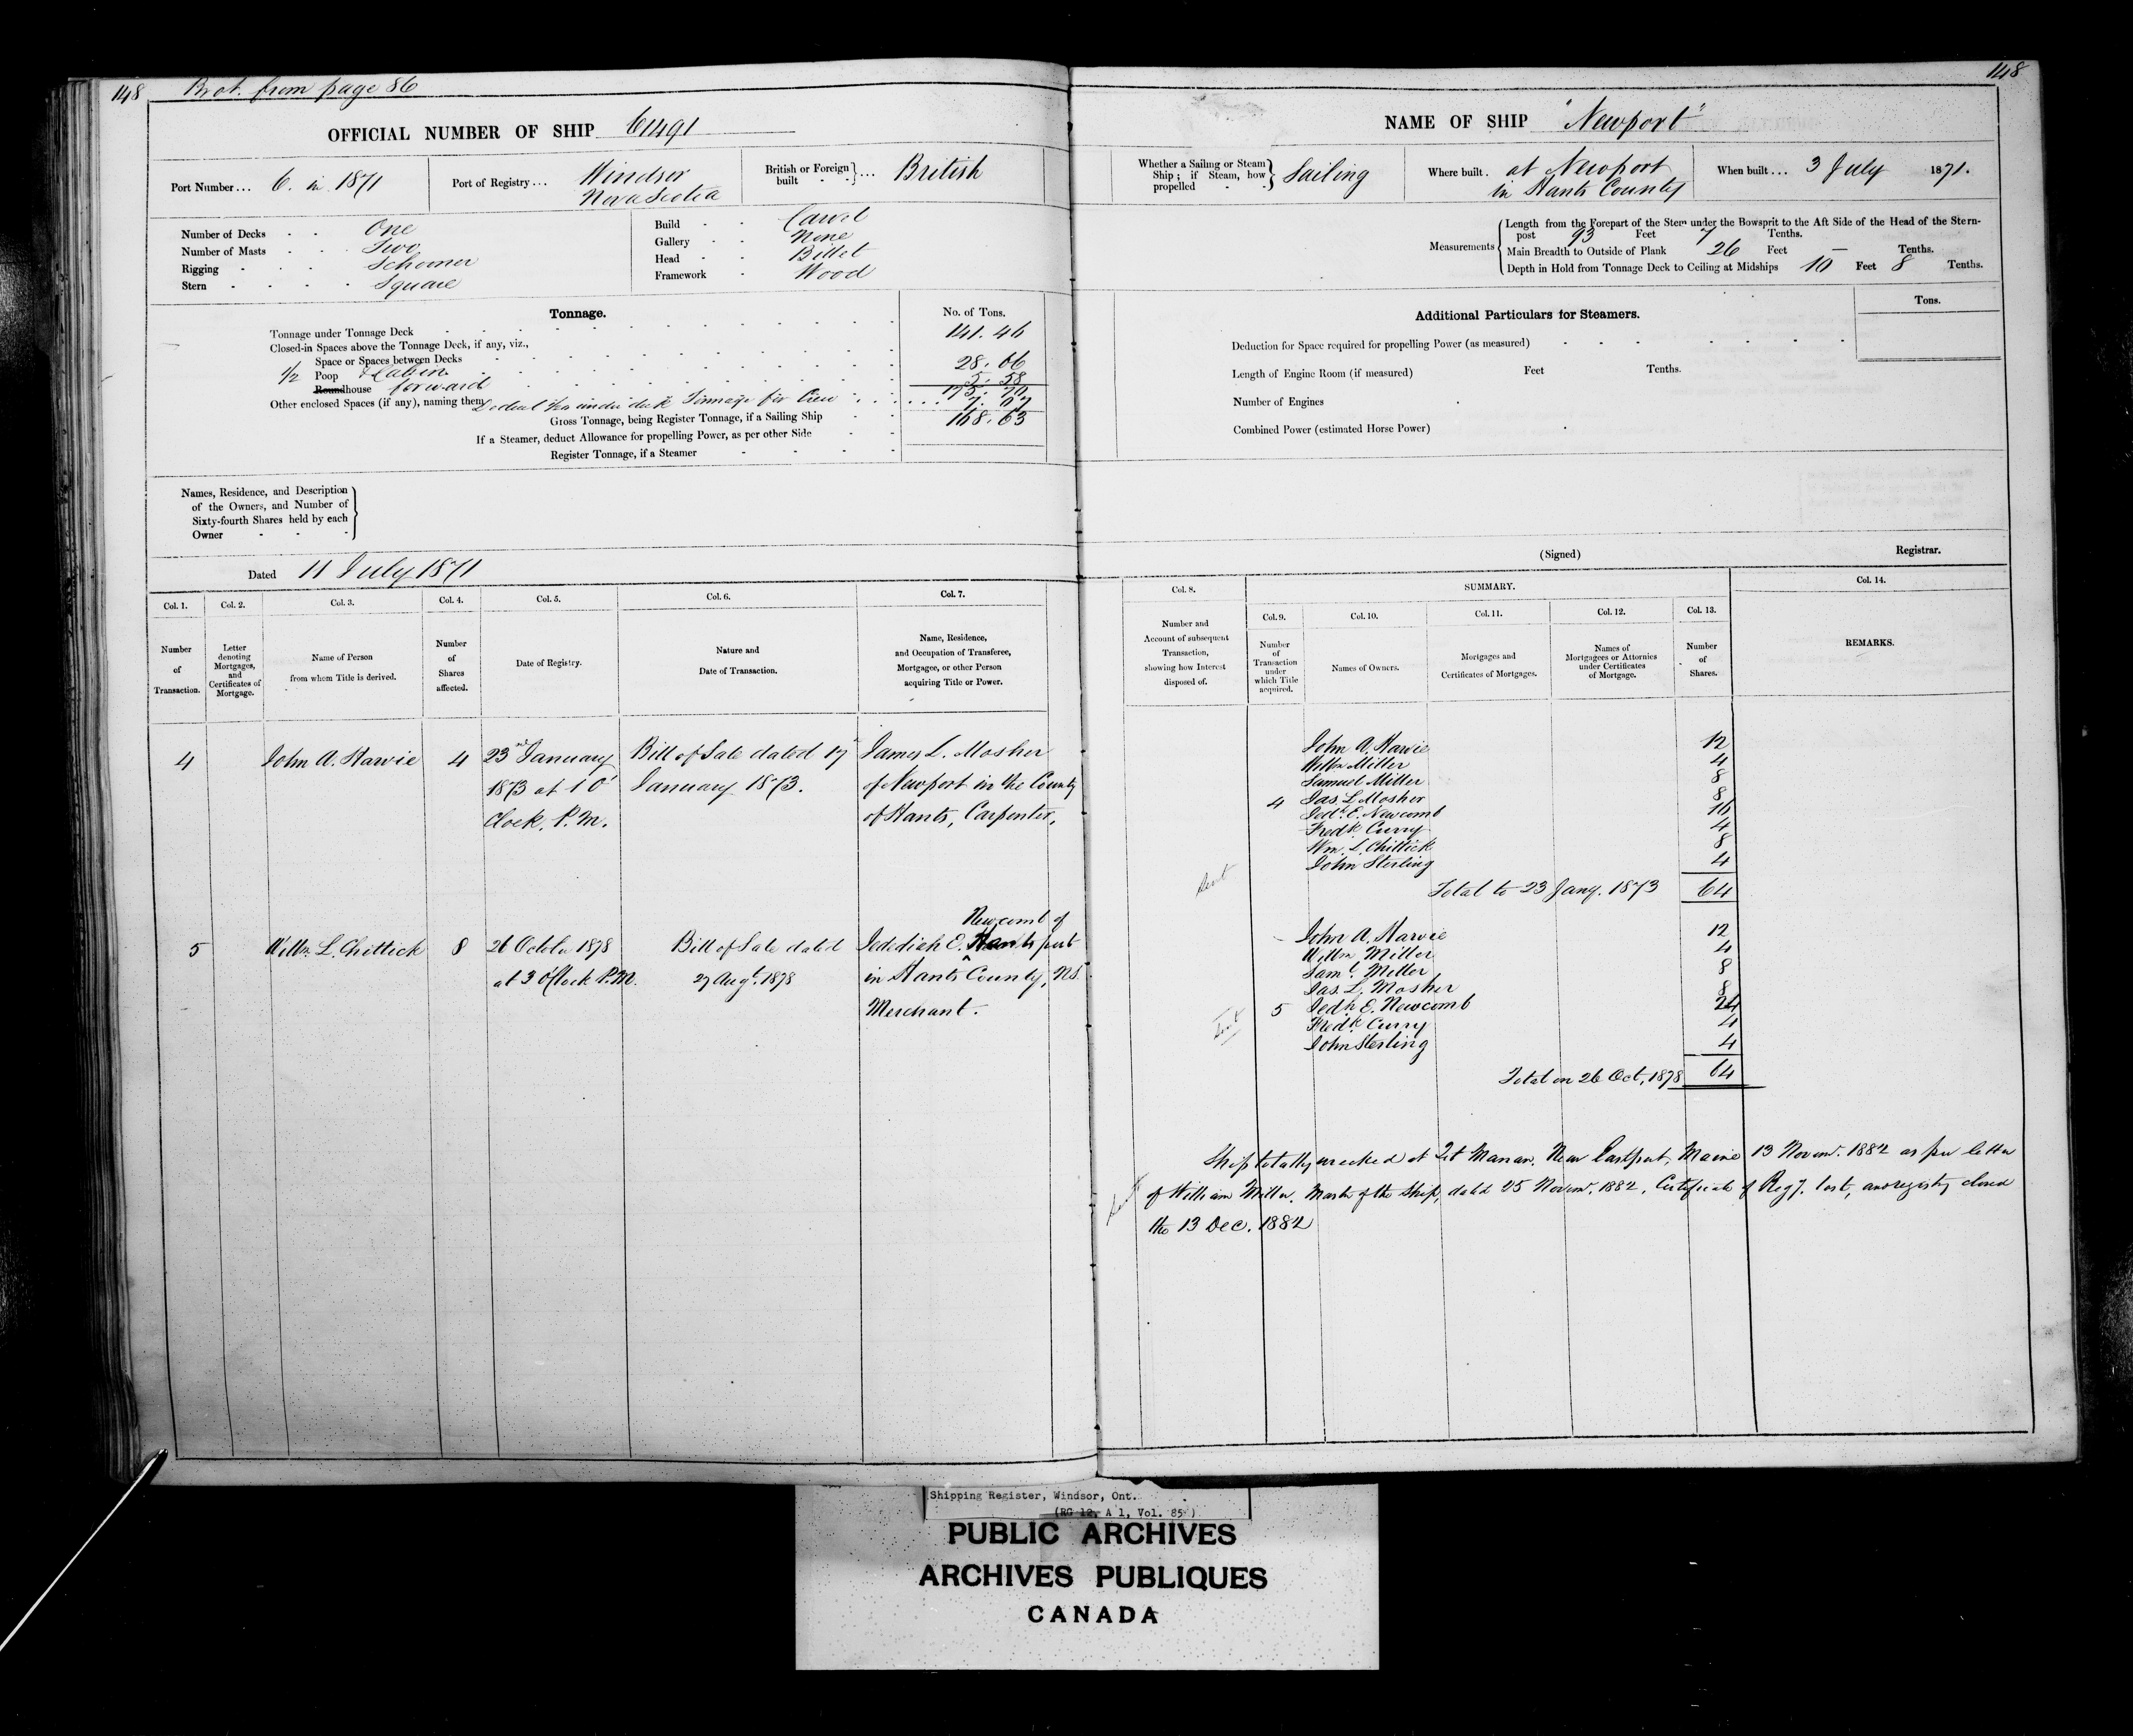 148 Brot. from page 86
OFFICIAL NUMBER OF SHIP 61491
Port Number... 6. in 1871
Port of Registry... Windsor
Nova Scotia
British or Foreign built ... British
Number of Decks One
Number of Masts Two
Rigging Schooner
Stern Square
Build Carvel
Gallery None
Head Billet
Framework Wood
Tonnage.
No. of Tons.
Tonnage under Tonnage Deck 141.46
Closed-in Spaces above the Tonnage Deck, if any, viz.,
Space or Spaces between Decks
1/2 Poop & Cabin 28.66
Roundhouse forward 5.58
175.70
Other enclosed Spaces (if any), naming them Deduct for under deck Tonnage for Crew 7.07
Gross Tonnage, being Register Tonnage, if a Sailing Ship 168.63
If a Steamer, deduct Allowance for propelling Power, as per other Side
Register Tonnage, if a Steamer
Names, Residence, and Description
of the Owners, and Number of
Sixty-fourth Shares held by each
Owner
Dated 11 July 1871
Col. 1. Col. 2. Col. 3. Col. 4. Col. 5. Col. 6. Col. 7.
Number of Transaction.
Letter denoting Mortgages, and Certificates of Mortgage.
Name of Person from whom Title is derived.
Number of Shares affected.
Date of Registry.
Nature and Date of Transaction.
Name, Residence, and Occupation of Transferee, Mortgagee, or other Person acquiring Title or Power.
4 John A. Harvie 4 23rd January Bill of Sale dated 17 James L. Mosher
1873 at 1 O' January 1873. of Newport in the County
Clock, P.M. of Hants, Carpenter,
Newcomb of
5 Willm L. Chittick 8 26 October 1878 Bill of Sale dated Jedidiah E. Hantsport
at 3 O'Clock P.M. 27 Augt. 1878 in Hants County, NS
Merchant.
148
NAME OF SHIP "Newport"
Whether a Sailing or Steam Ship; if Steam, how propelled Sailing
Where built. at Newport
in Hants County
When built... 3 July 1871.
Measurements
Length from the Forepart of the Stem under the Bowsprit to the Aft Side of the Head of the Stern-
post 93 Feet 7 Tenths.
Main Breadth to Outside of Plank 26 Feet — Tenths.
Depth in Hold from Tonnage Deck to Ceiling at Midships 10 Feet 8 Tenths.
Additional Particulars for Steamers.
Tons.
Deduction for Space required for propelling Power (as measured)
Length of Engine Room (if measured) Feet Tenths.
Number of Engines
Combined Power (estimated Horse Power)
(Signed) Registrar.
Col. 8. SUMMARY. Col. 14.
Col. 9. Col. 10. Col. 11. Col. 12. Col. 13.
Number and Account of subsequent Transaction, showing how Interest disposed of.
Number of Transaction under which Title acquired.
Names of Owners.
Mortgages and Certificates of Mortgages.
Names of Mortgagees or Attornies under Certificates of Mortgage.
Number of Shares.
REMARKS.
John A. Harvie 12
Willm Miller 4
Samuel Miller 8
4 Jas. L. Mosher 8
Jedh. E. Newcomb 16
Fredk. Curry 4
Wm. L. Chittick 8
John Sterling 4
Total to 23 Jany. 1873 64
John A. Harvie 12
Willm Miller 4
Saml. Miller 8
Jas. L. Mosher 8
5 Jedh E. Newcomb 24
Fredk. Curry 4
John Sterling 4
Total on 26 Oct, 1878 64
Ship totally wrecked at Manan, Near Eastport, Maine 13 Novemr. 1882 as per letter
of William Miller, Master of the Ship, dated 25 Novemr. 1882. Certificate of Regy. lost, and registry closed
the 13 Dec. 1882
Shipping Register, Windsor, Ont.
(RG 12, A 1, Vol. 85)
PUBLIC ARCHIVES
ARCHIVES PUBLIQUES
CANADA